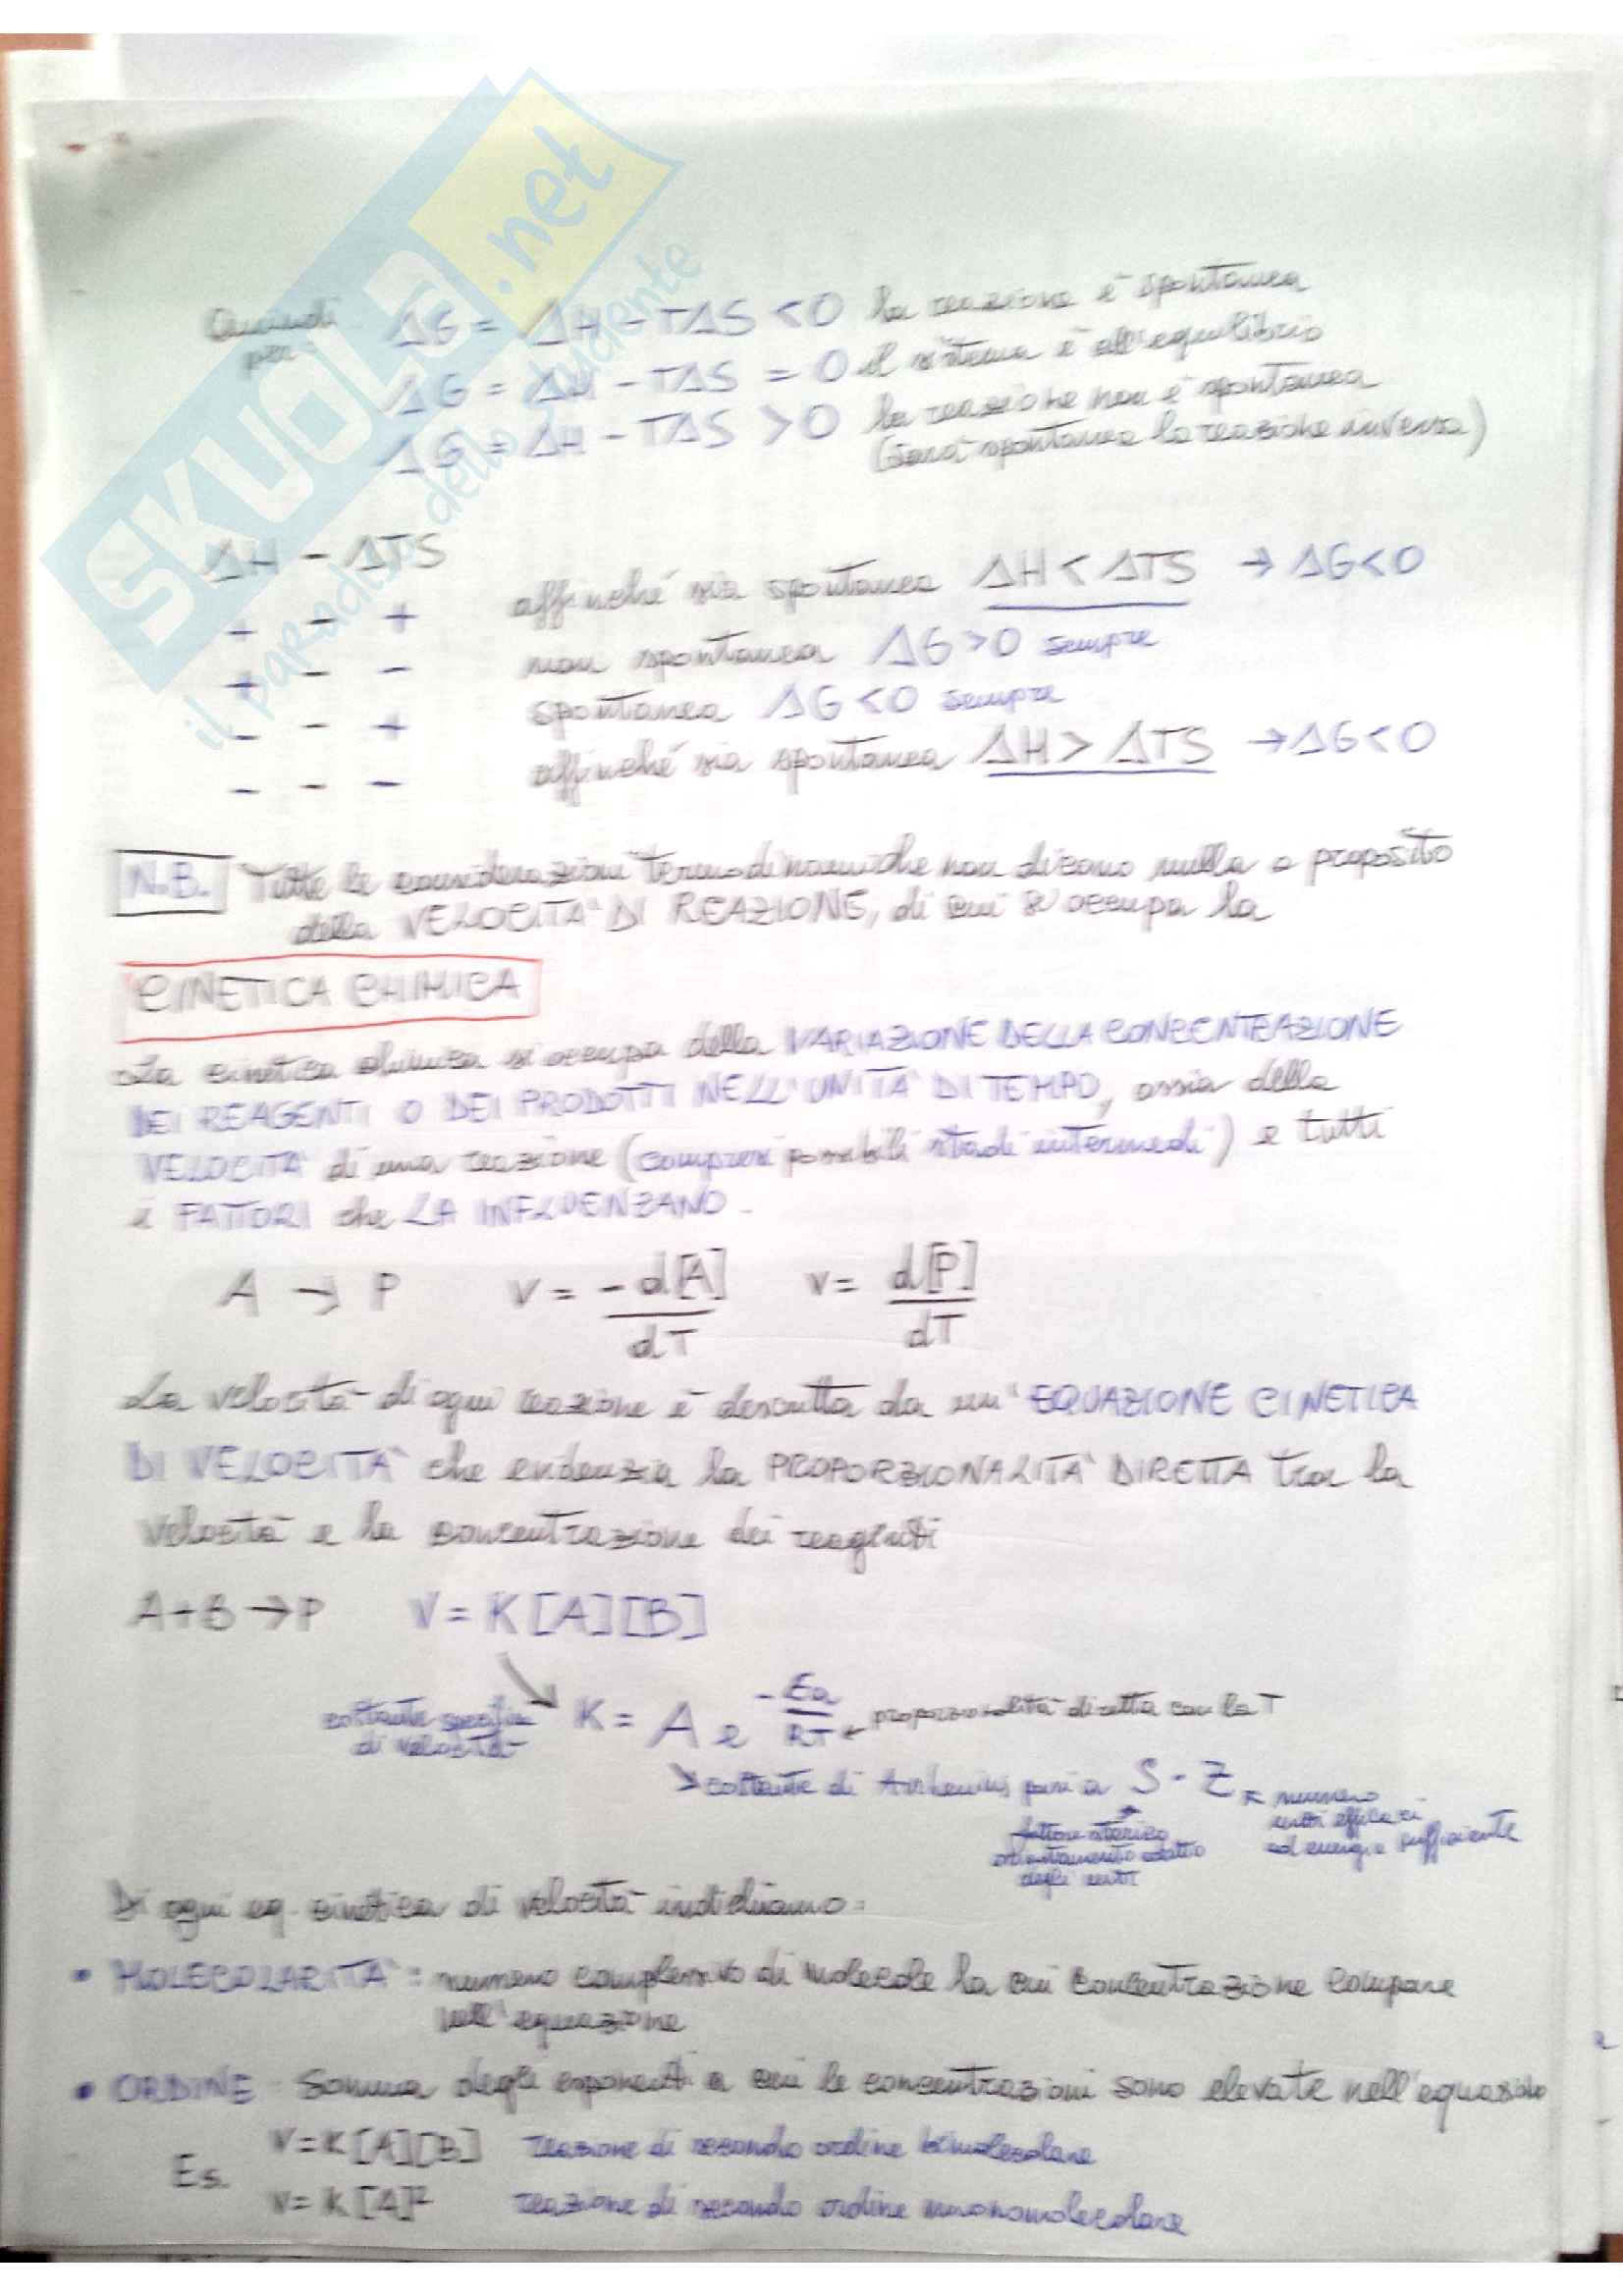 SKUOLA.net
il paradiso dello studente
Quindi per ΔG = ΔH - TΔS < 0 la reazione è spontanea
ΔG = ΔH - TΔS = 0 il sistema è all'equilibrio
ΔG = ΔH - TΔS > 0 la reazione non è spontanea
(sarà spontanea la reazione inversa)
ΔH - ΔTS
+ - + affinché sia spontanea ΔH < ΔTS → ΔG<0
+ - - non spontanea ΔG>0 sempre
- - + spontanea ΔG<0 sempre
- - - affinché sia spontanea ΔH > ΔTS → ΔG<0
N.B. Tutte le considerazioni termodinamiche non dicono nulla a proposito
della VELOCITA' DI REAZIONE, di cui si occupa la
CINETICA CHIMICA
La cinetica chimica si occupa della VARIAZIONE DELLA CONCENTRAZIONE
DEI REAGENTI O DEI PRODOTTI NELL'UNITA' DI TEMPO, ossia della
VELOCITA' di una reazione (compresi possibili stadi intermedi) e tutti
i FATTORI che LA INFLUENZANO.
A → P v = -d[A]/dT v = d[P]/dT
La velocità di ogni reazione è descritta da un'EQUAZIONE CINETICA
DI VELOCITA' che evidenzia la PROPORZIONALITA' DIRETTA tra la
velocità e la concentrazione dei reagenti
A+B → P V = K[A][B]
costante specifica di velocità K = A e^-Ea/RT ← proporzionalità diretta con la T
↘ costante di Arrhenius pari a S - Z ↖ numero
urti efficaci
ad energia sufficiente
fattore sterico
orientamento adatto
degli urti
Di ogni eq. cinetica di velocità indichiamo:
• MOLECOLARITA': numero complessivo di molecole la cui concentrazione compare
nell'equazione
• ORDINE Somma degli esponenti a cui le concentrazioni sono elevate nell'equazione
Es. V=K[A][B] reazione di secondo ordine bimolecolare
V=K[A]² reazione di secondo ordine monomolecolare